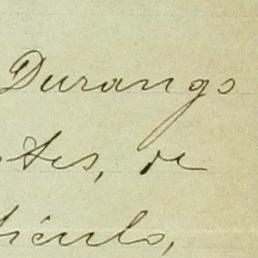 Durango
tes, de
tículo,